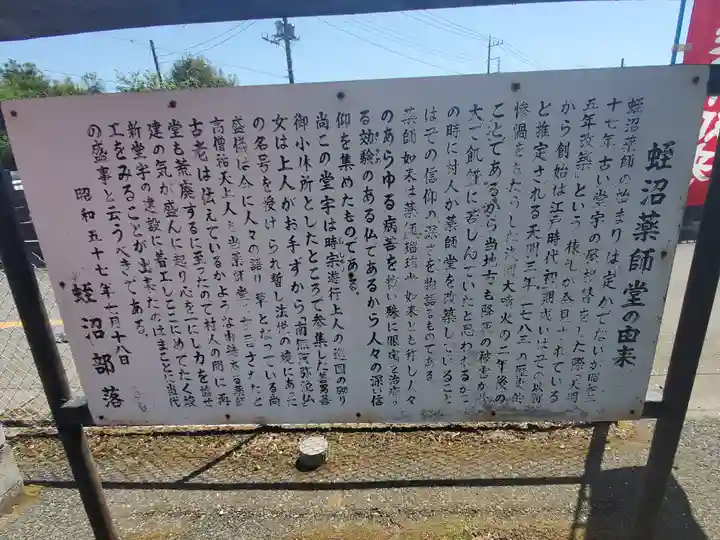 蛭沼薬師堂の由来
蛭沼薬師の始まりは定かでないが昭和三
十七年古い堂宇の屋根替をした際「天明
五年改築」という棟札が発見されている
から創始は江戸時代初期或いはその以前
と推定される天明三年(一七八三)の歴史的
惨禍をもたらした浅間大噴火の二年後の
ことであるから当地方も降灰の被害が
大で飢饉に苦しんでいたと思われるが
の時に村人が薬師堂を改築していること
はその信仰の深さを物語るものである
薬師如来は薬師瑠璃光如来とも称し人々
のあらゆる病苦を救い殊に眼病を治す
る効験のある仏であるから人々の深い信
仰を集めたものである。
尚この堂宇は時宗遊行上人の巡国の砌り
御小休所としたところで参集した善男善
女は上人がお手ずから南無阿弥陀仏
の名号を授けられ暫し法悦の境にあった
盛儀は今に人々の語り草となっている尚
高僧祐天上人も当薬師堂に
古老は伝えているかような御縁
堂も荒廃するに至ったので村人の間に再
建の気が盛んに起り心を一にし力を協せ
新堂宇の建設に着工しここにめでたく竣
工をみることが出来たのはまことに当代
の盛事と云うべきである。
昭和五十七年十月十八日
蛭沼部落